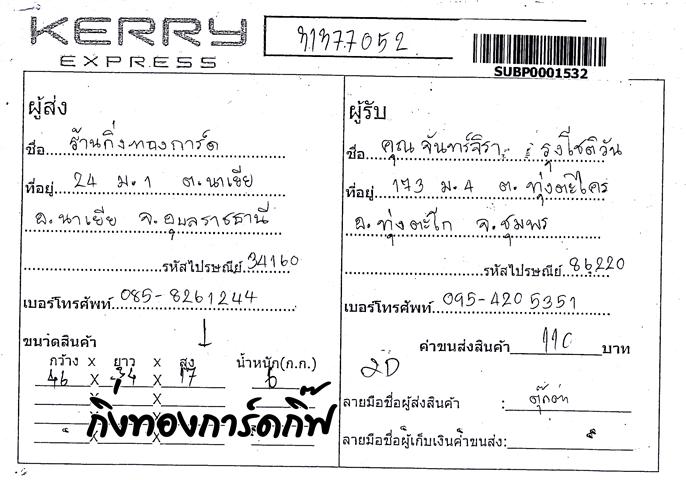 KERRY
EXPRESS
31377052
SUBP0001532
ผู้ส่ง
ชื่อ ร้านกิ่งทองการ์ด
ที่อยู่ 24 ม.1 ต.นาเยีย
อ.นาเยีย จ.อุบลราชธานี
รหัสไปรษณีย์ 34160
เบอร์โทรศัพท์ 085-8261244
ขนาดสินค้า
กว้าง x ยาว x สูง น้ำหนัก(ก.ก.)
46 X 34 X 17 6
X X
X X
X X
กิ่งทองการ์ดกิ๊ฟ
ผู้รับ
ชื่อ คุณ จันทร์จิรา รุ่งโชติวัน
ที่อยู่ 173 ม.4 ต. ทุ่งตะไคร
อ. ทุ่งตะโก จ.ชุมพร
รหัสไปรษณีย์ 86220
เบอร์โทรศัพท์ 095-420 5351
ค่าขนส่งสินค้า 110 บาท
2D
ลายมือชื่อผู้ส่งสินค้า :
ลายมือชื่อผู้เก็บเงินค่าขนส่ง: